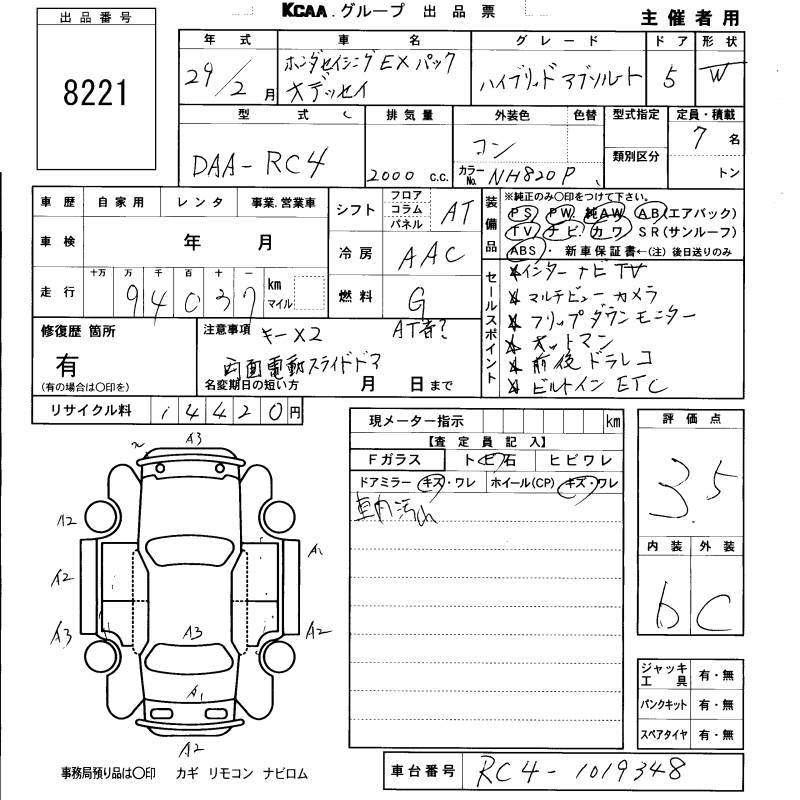 KCAA.グループ 出品票
主催者用
出品番号
8221
年式 車名 グレード ドア 形状
29/2月 ホンダセイシングEXパック
オデッセイ
ハイブリッド アブソルート 5 W
型式 排気量 外装色 色替 型式指定 定員・積載
DAA-RC4 2000 c.c. コン 7名
カラーNo. NH820P 類別区分 トン
車歴 自家用 レンタ 事業.営業車
シフト フロア コラム パネル AT
装備品 ※純正のみ〇印をつけて下さい。
PS PW 純AW AB(エアバック)
TV ナビ カワ SR(サンルーフ)
ABS・新車保証書←(注)後日送りのみ
車検 年 月
冷房 AAC
走行 十万 万 千 百 十 一 km マイル
94037
燃料 G
セールスポイント
インターナビTV
マルチビューカメラ
フリップダウンモニター
オットマン
前後ドラレコ
ビルトインETC
修復歴 箇所
有
(有の場合は〇印を)
注意事項 キーX2
AT者?
両面電動スライドドア
名変期日の短い方 月 日まで
リサイクル料 14420円
現メーター指示 km
【査定員記入】
Fガラス トビ石 ヒビワレ
ドアミラー キズ・ワレ ホイール(CP) キズ・ワレ
車内汚れ
評価点
3.5
内装 外装
b C
A3
A2 A1
A2
A3 A3 A2
A1
A2
ジャッキ工具 有・無
パンクキット 有・無
スペアタイヤ 有・無
事務局預り品は〇印 カギ リモコン ナビロム
車台番号 RC4-1019348